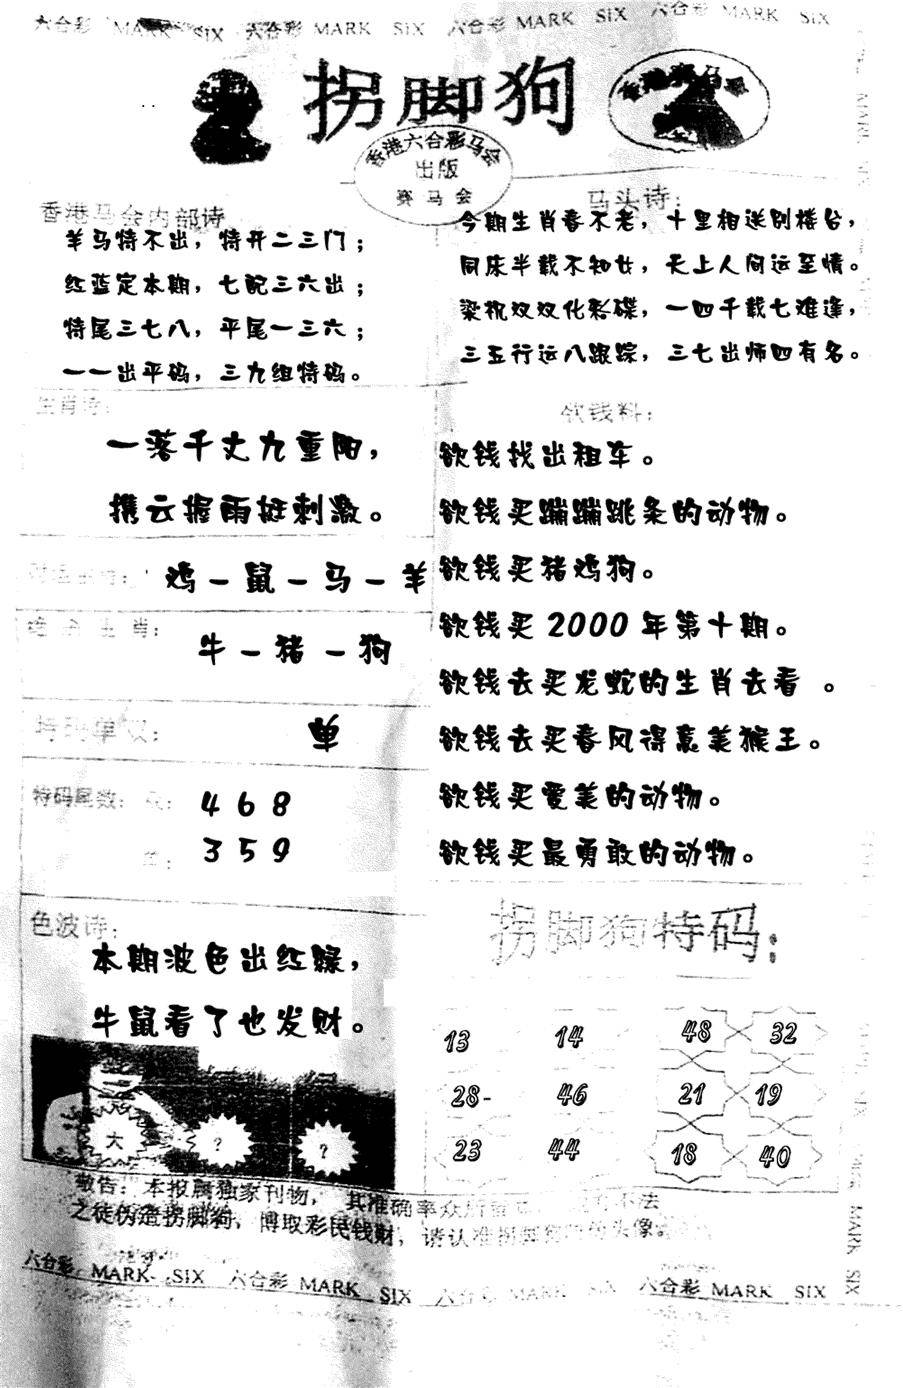 六合彩 MARK SIX 六合彩 MARK SIX 六合彩 MARK SIX 六合彩 MARK SIX
拐脚狗
香港赛马会
香港六合彩马会
出版
赛马会
香港马会内部诗
羊马特不出，特开二三门；
红蓝定本期，七配三六出；
特尾三七八，平尾一三六；
一一出平码，三九组特码。
马头诗：
今期生肖春不老，十里相送别楼台，
同床半载不知女，天上人间运至情。
梁祝双双化彩碟，一四千载七难逢，
三五行运八跟踪，三七出师四有名。
生肖诗：
一落千丈九重阳，
携云握雨挺刺激。
鸡－鼠－马－羊
生肖：
牛－猪－狗
特码单双：
单
特码尾数：
4 6 8
3 5 9
欲钱料：
欲钱找出租车。
欲钱买蹦蹦跳条的动物。
欲钱买猪鸡狗。
欲钱买 2000 年第十期。
欲钱去买龙蛇的生肖去看 。
欲钱去买春风得意美猴王。
欲钱买爱美的动物。
欲钱买最勇敢的动物。
色波诗：
本期波色出红绿，
牛鼠看了也发财。
大 ? ?
拐脚狗特码：
13 14 48 32
28- 46 21 19
23 44 18 40
敬告：本报属独家刊物，其准确率众所 不法
之徒伪造拐脚狗，博取彩民钱财，请认准拐脚 头像。
六合彩 MARK SIX 六合彩 MARK SIX 六合彩 MARK SIX 六合彩 MARK SIX
MARK SIX